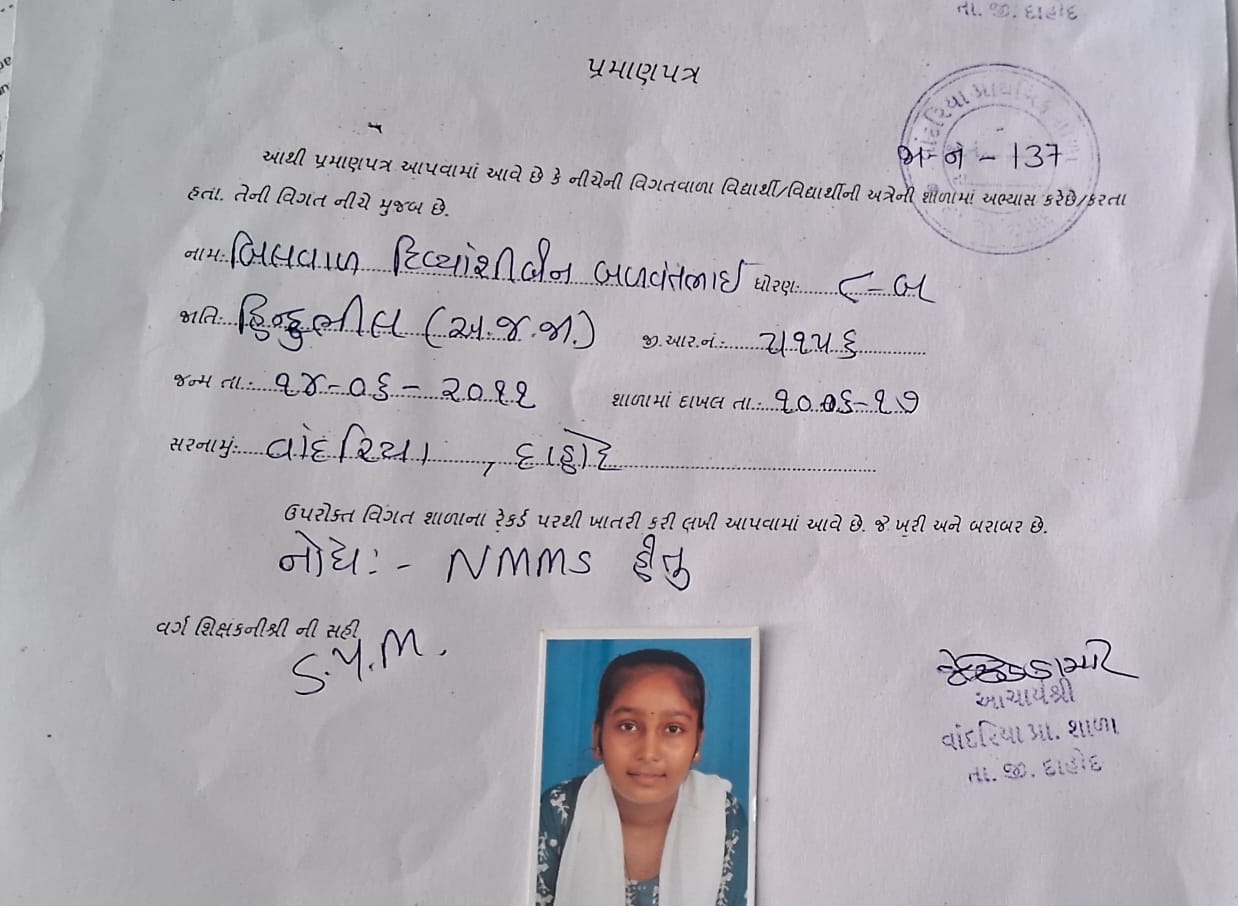 તા. જી. દાહોદ
પ્રમાણપત્ર
જા-નં - 137
આથી પ્રમાણપત્ર આપવામાં આવે છે કે નીચેની વિગતવાળા વિદ્યાર્થી/વિદ્યાર્થીની અત્રેની શાળામાં અભ્યાસ કરેછે/કરતા
હતા. તેની વિગત નીચે મુજબ છે.
નામ: બિલવાળ દિવ્યાંશીબેન બળવંતભાઈ ધોરણ: ૮-બ
જાતિ: હિન્દુ ભીલ (અ.જ.જા.) જી.આર.નં.: ૨૧૧૫૬
જન્મ તા.: ૧૪-૦૬-૨૦૧૧ શાળામાં દાખલ તા.: ૧૦.૦૬-૧૭
સરનામું: વાંદરિયા, દાહોદ
ઉપરોક્ત વિગત શાળાના રેકર્ડ પરથી ખાતરી કરી લખી આપવામાં આવે છે. જે ખરી અને બરાબર છે.
નોંધ :- NMMS હેતુ
વર્ગ શિક્ષકનીશ્રી ની સહી
S.Y.M.
આચાર્યશ્રી
વાંદરિયા પ્રા. શાળા
તા. જી. દાહોદ